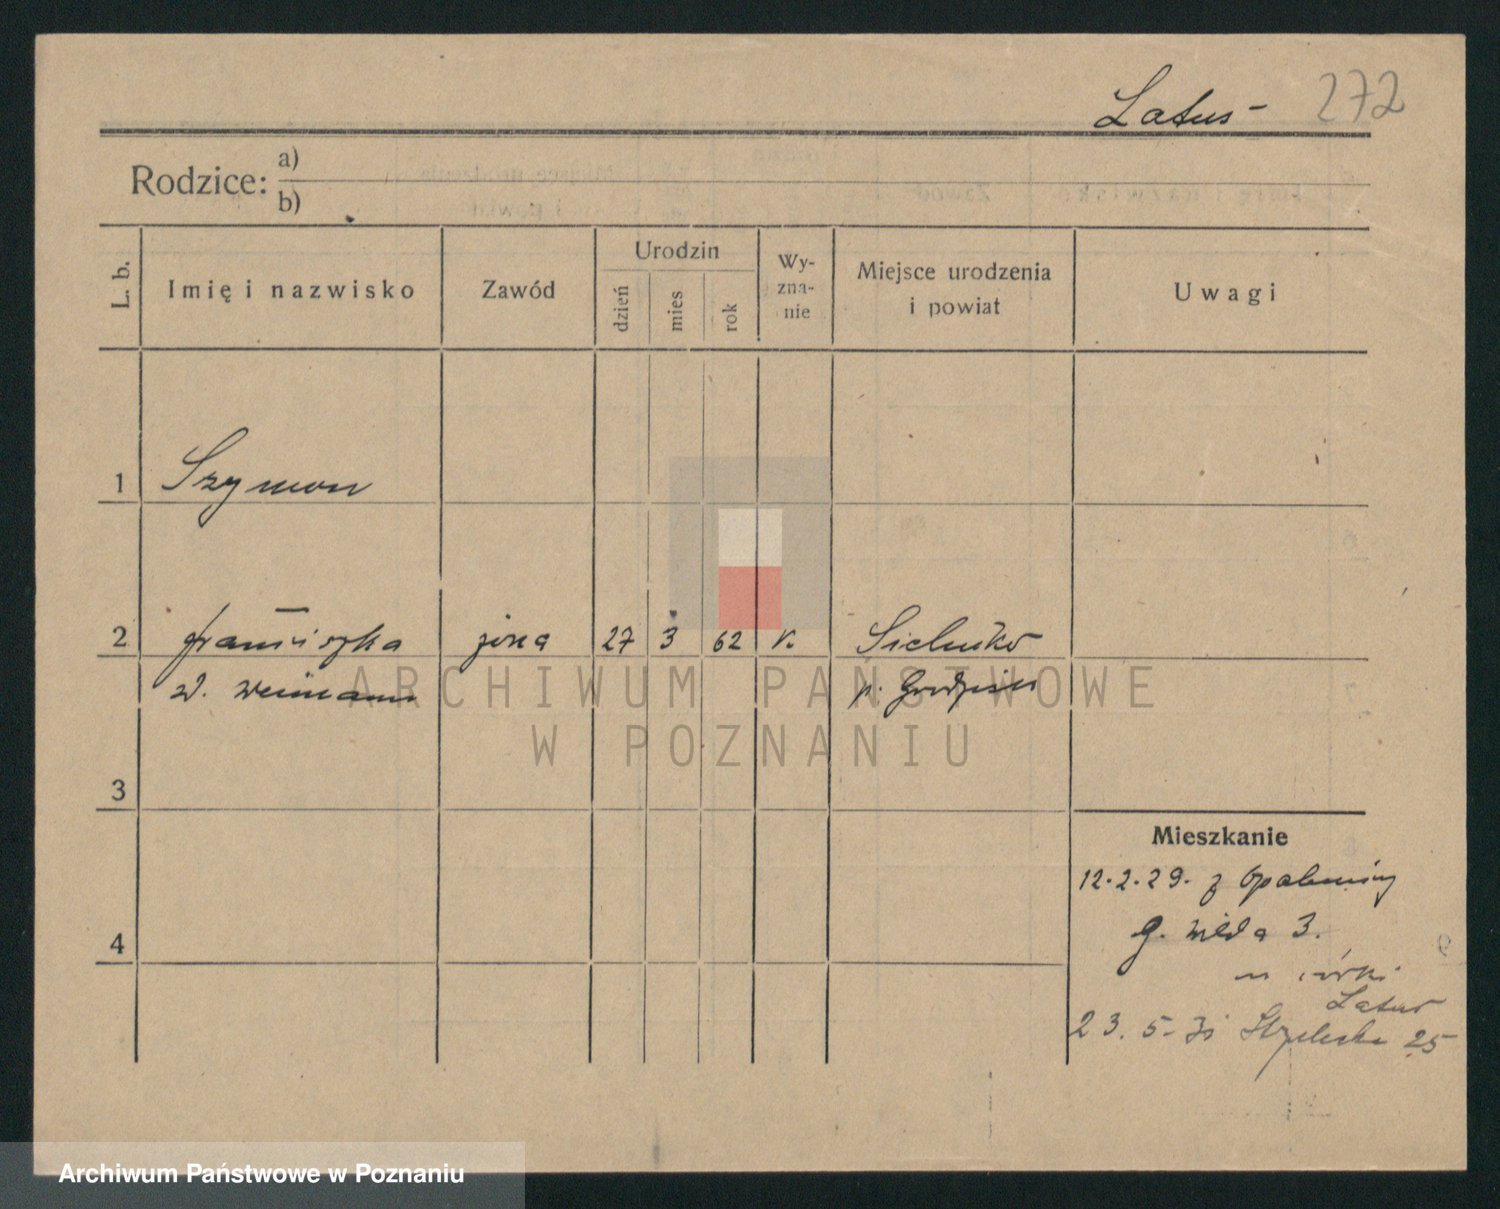 Latus - 272
Rodzice: a)
b)
L. b.
Imię i nazwisko
Zawód
Urodzin
dzień
mies
rok
Wy-
zna-
nie
Miejsce urodzenia
i powiat
Uwagi
1 Szymon
2 Franciszka żona 27 3 62 k. Sielinko
z d. Weimann p. Grodzisk
3
4
Mieszkanie
12.2.29. z Opalenicy
G. Wilda 3.
u córki
Latus
23. 5. Strzelecka 25
ARCHIWUM PAŃSTWOWE
W POZNANIU
Archiwum Państwowe w Poznaniu